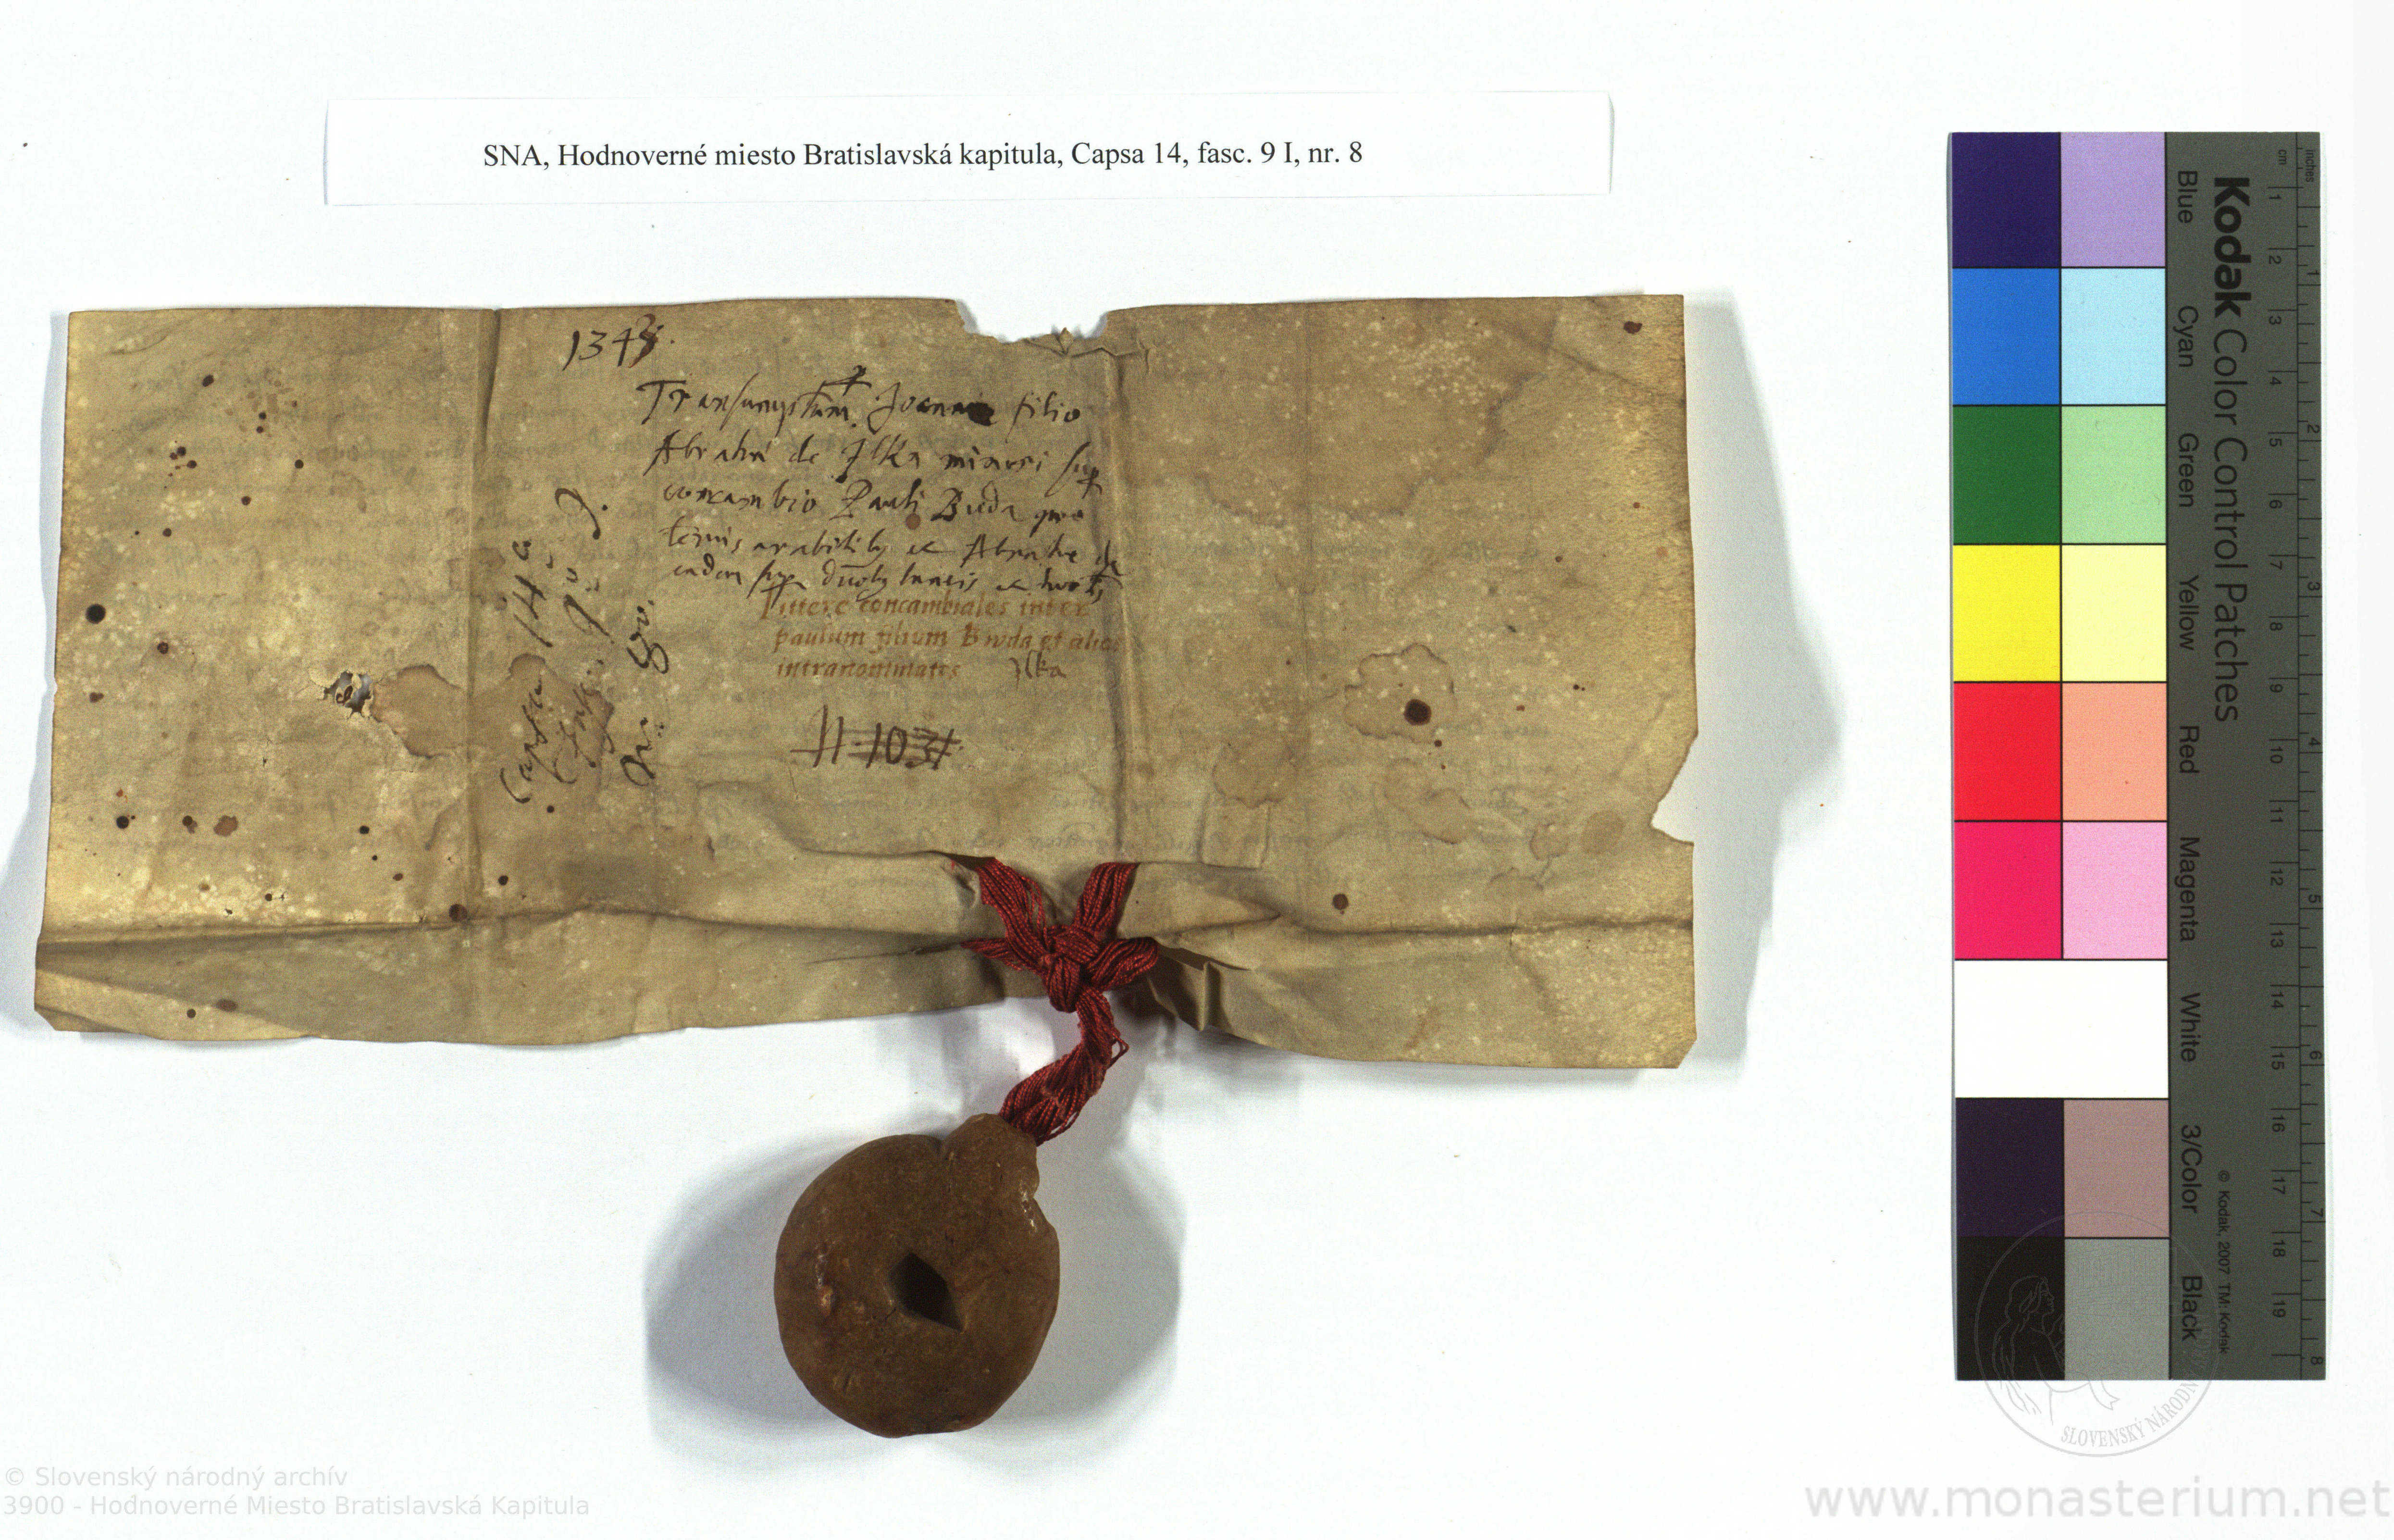 SNA, Hodnoverné miesto Bratislavská kapitula, Capsa 14, fasc. 9 I, nr. 8
134
Joanne filio
de Ilka
concambio Pauli Buda
Abrahe de
Littere concambiales inter
paulum filium Bwda et alios
intranominatos Ilka
Capsa 14a
Fasc. 9us I.
Nr. 8vus.
H 103
Kodak Color Control Patches
Blue Cyan Green Yellow Red Magenta White 3/Color Black
© Kodak, 2007 TM: Kodak
inches 1 2 3 4 5 6 7 8
cm 1 2 3 4 5 6 7 8 9 10 11 12 13 14 15 16 17 18 19
SLOVENSKÝ NÁRODN
© Slovenský národný archív
3900 - Hodnoverné Miesto Bratislavská Kapitula
www.monasterium.net